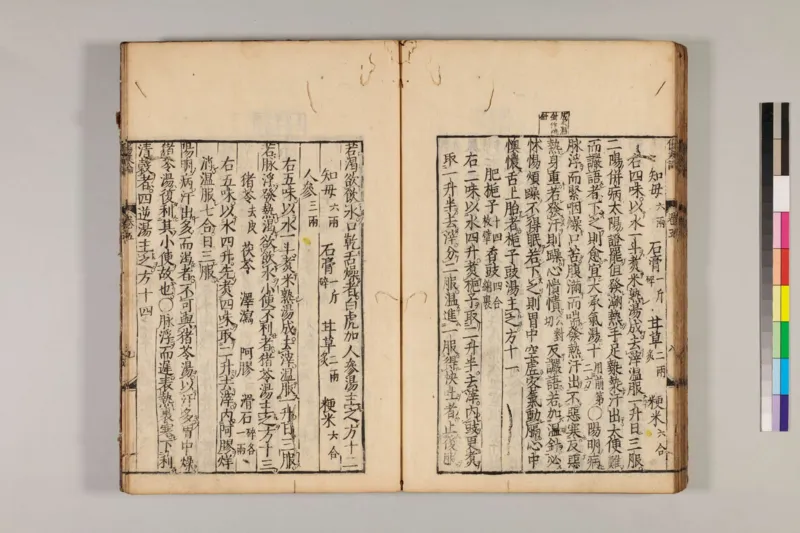 知母六兩 石膏一斤碎 甘草二兩炙 粳米六合
右四味以水一斗煮米熟湯成去滓温服一升日三服
二陽併病太陽證罷但發潮熱手足漐漐汗出大便難
而讝語者下之則愈宜大承氣湯十二用前第二方○陽明病
脉浮而緊咽燥口苦腹滿而喘發熱汗出不惡寒反惡
熱身重若發汗則躁心憒憒公對切反讝語若加温針必
怵惕煩躁不得眠若下之則胃中空虛客氣動膈心中
懊憹舌上胎者梔子豉湯主之方十一
肥梔子十四枚擘 香豉四合綿裹
右二味以水四升煮梔子取二升半去滓內豉更煮
取一升半去滓分二服温進一服得快吐者止後服
若渴欲飲水口乾舌燥者白虎加人參湯主之方十二
知母六兩 石膏一斤碎 甘草二兩炙 粳米六合
人參三兩
右五味以水一斗煮米熟湯成去滓温服一升日三服
若脉浮發熱渴欲飲水小便不利者猪苓湯主之方十三
猪苓去皮 茯苓 澤瀉 阿膠 滑石碎各一兩
右五味以水四升先煮四味取二升去滓內阿膠烊
消温服七合日三服
陽明病汗出多而渴者不可與猪苓湯以汗多胃中燥
猪苓湯復利其小便故也○脉浮而遲表熱裏寒下利
清穀者四逆湯主之方十四